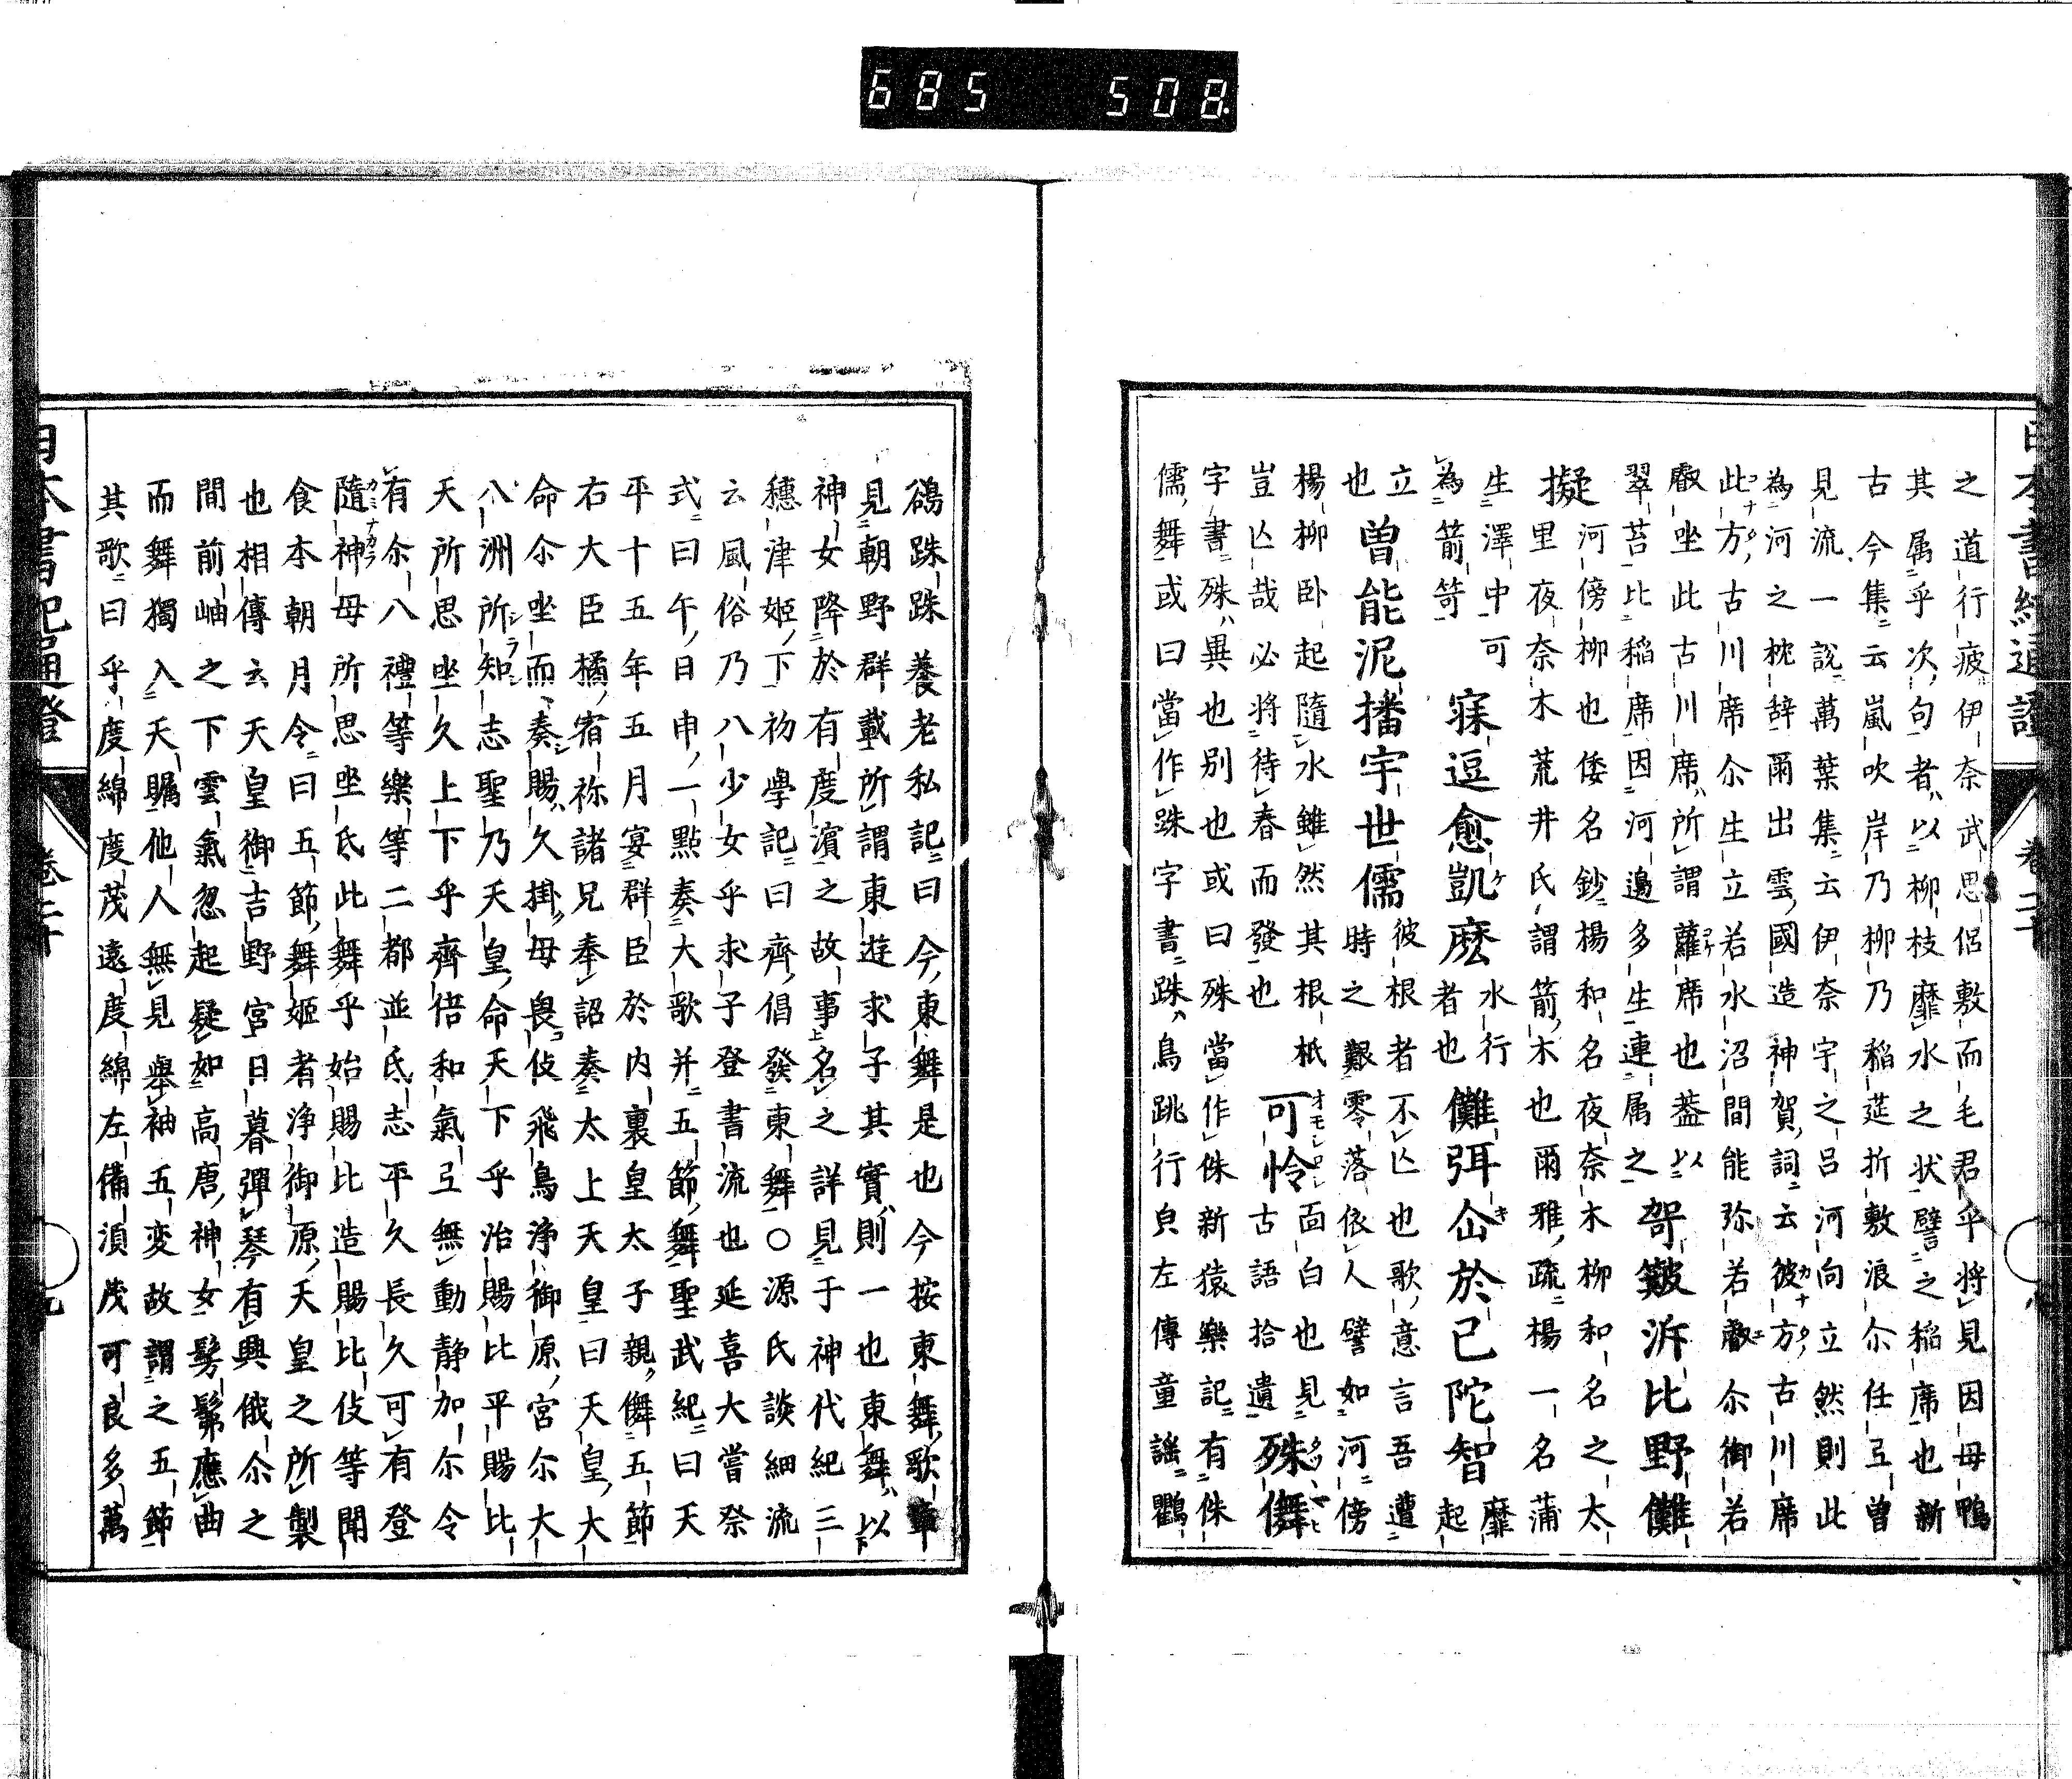 685 508
日本書紀通證 卷二十
之道行疲伊奈武思侶敷而毛君乎將見因母鴨
其属乎次句者以柳枝靡水之状譬之稲席也新
古今集云嵐吹岸乃柳乃稲莚折敷浪尒任弖曽
見流一說萬葉集云伊奈宇之呂河向立然則此
為河之枕辞爾出雲國造神賀詞云彼方古川席
此方古川席尒生立若水沼間能弥若叡尒御若
叡坐此古川席所謂蘿席也盖以
翠苔比稲席因河邊多生連属之 哿簸泝比野儺
擬 河傍柳也倭名鈔楊和名夜奈木柳和名之太
里夜奈木荒井氏謂箭木也爾雅疏楊一名蒲
生澤中可
為箭笴 寐逗愈凱麽 水行
者也 儺弭企於己陀智 靡
起
立
也 曽能泥播宇世儒 彼根者不亾也歌意言吾遭
時之艱零落依人譬如河傍
楊柳卧起隨水雖然其根柢
豈亾哉必將待春而發也 可怜 面白也見
古語拾遺 殊儛
字書殊異也別也或曰殊當作侏新猿樂記有侏
儒舞或曰當作跦字書跦鳥跳行皃左傳童謡鸜
鵒跦跦養老私記曰今東舞是也今按東舞歌章
見朝野群載所謂東遊求子其實則一也東舞以
神女降於有度濱之故事名之詳見于神代紀三
穗津姬下初學記曰齊倡發東舞○源氏談細流
云風俗乃八少女乎求子登書流也延喜大嘗祭
式曰午日申一點奏大歌并五節舞聖武紀曰天
平十五年五月宴群臣於内裏皇太子親儛五節
右大臣橘宿祢諸兄奉詔奏太上天皇曰天皇大
命尒坐而奏賜久掛母畏伎飛鳥浄御原宮尒大
八洲所知志聖乃天皇命天下乎治賜比平賜比
天所思坐久上下乎齊倍和氣弖無動静加尒令
有尒八禮等樂等二都並氐志平久長久可有登
隨神母所思坐氐此舞乎始賜比造賜比伎等聞
食本朝月令曰五節舞姬者浄御原天皇之所製
也相傳云天皇御吉野宮日暮彈琴有興俄尒之
間前岫之下雲氣忽起疑如高唐神女髣髴應曲
而舞獨入天矚他人無見舉袖五変故謂之五節
其歌曰乎度綿度茂遠度綿左備湏茂可良多萬
日本書紀通證 卷二十 九